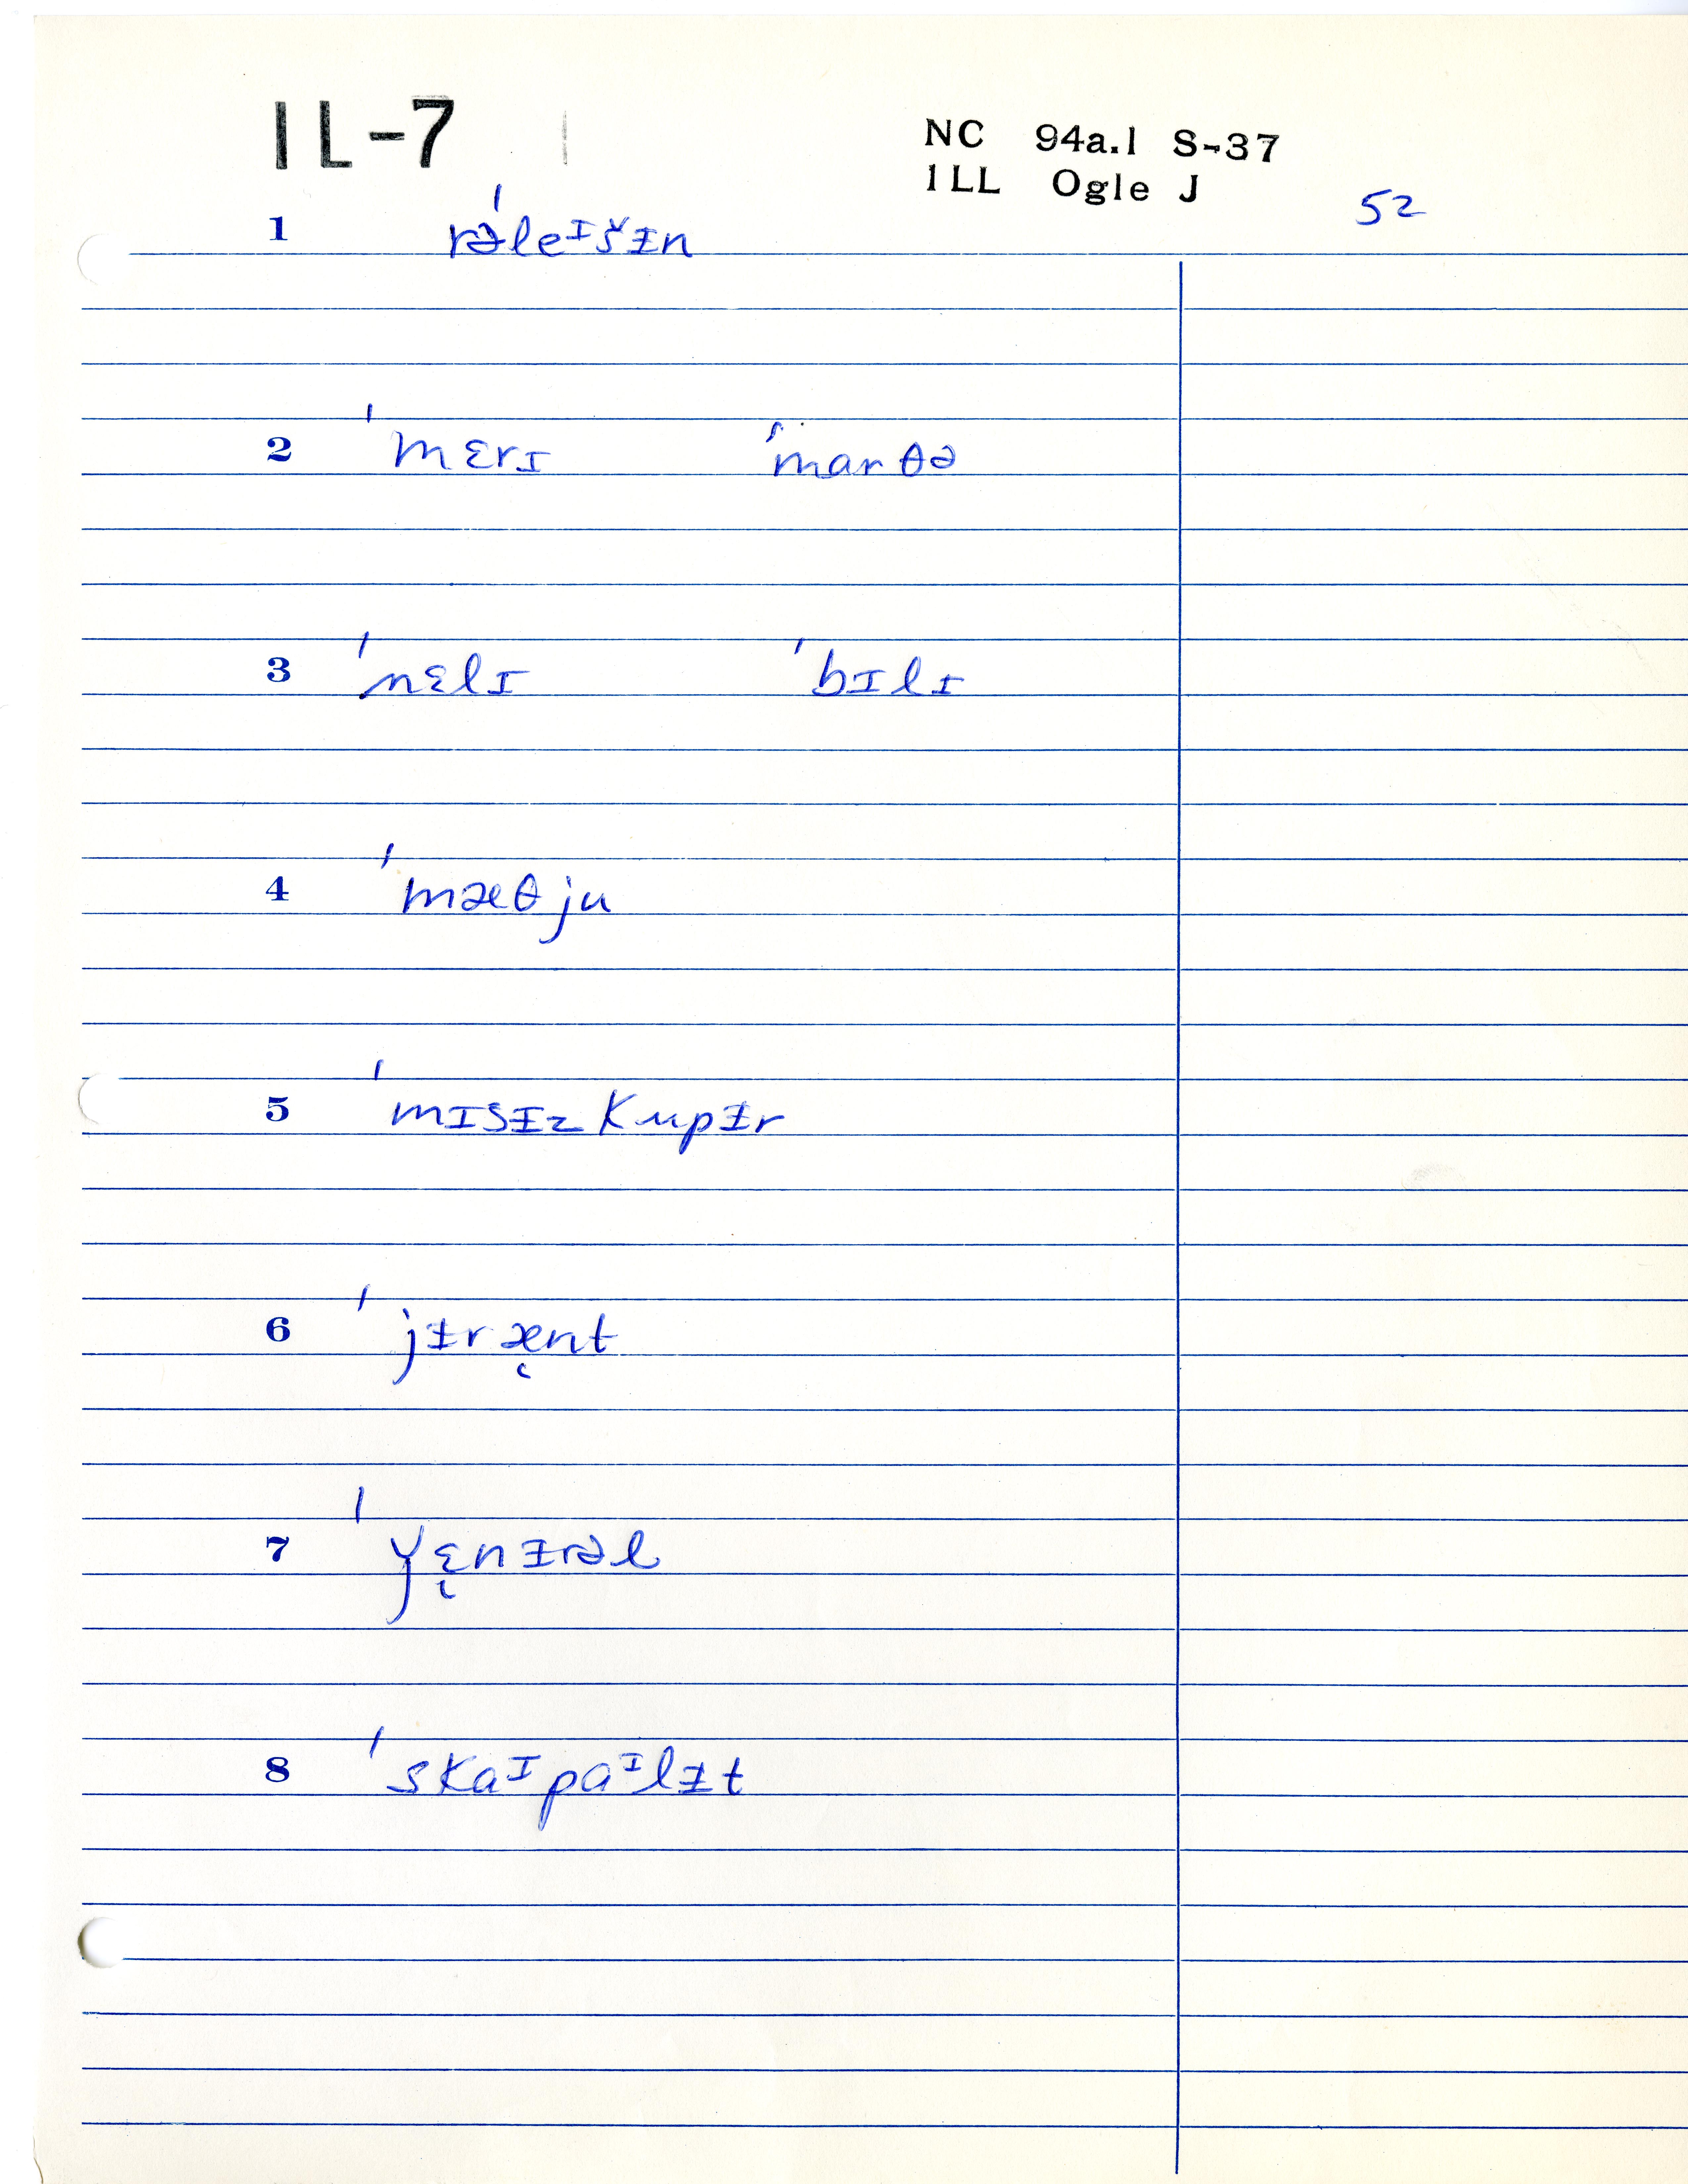 IL-7
NC 94a.1 S-37
ILL Ogle J
52
1 rəˈleᶦšᵻn
2 ˈmɛrɪ ˈmarθə
3 ˈnɛlɪ ˈbɪlɪ
4 ˈmæθju
5 ˈmɪsᵻz kupᵻr
6 ˈjᵻræ̨nt
7 ˈǰɛ̨nᵻrəl
8 ˈskaᶦpaᶦlᵻt